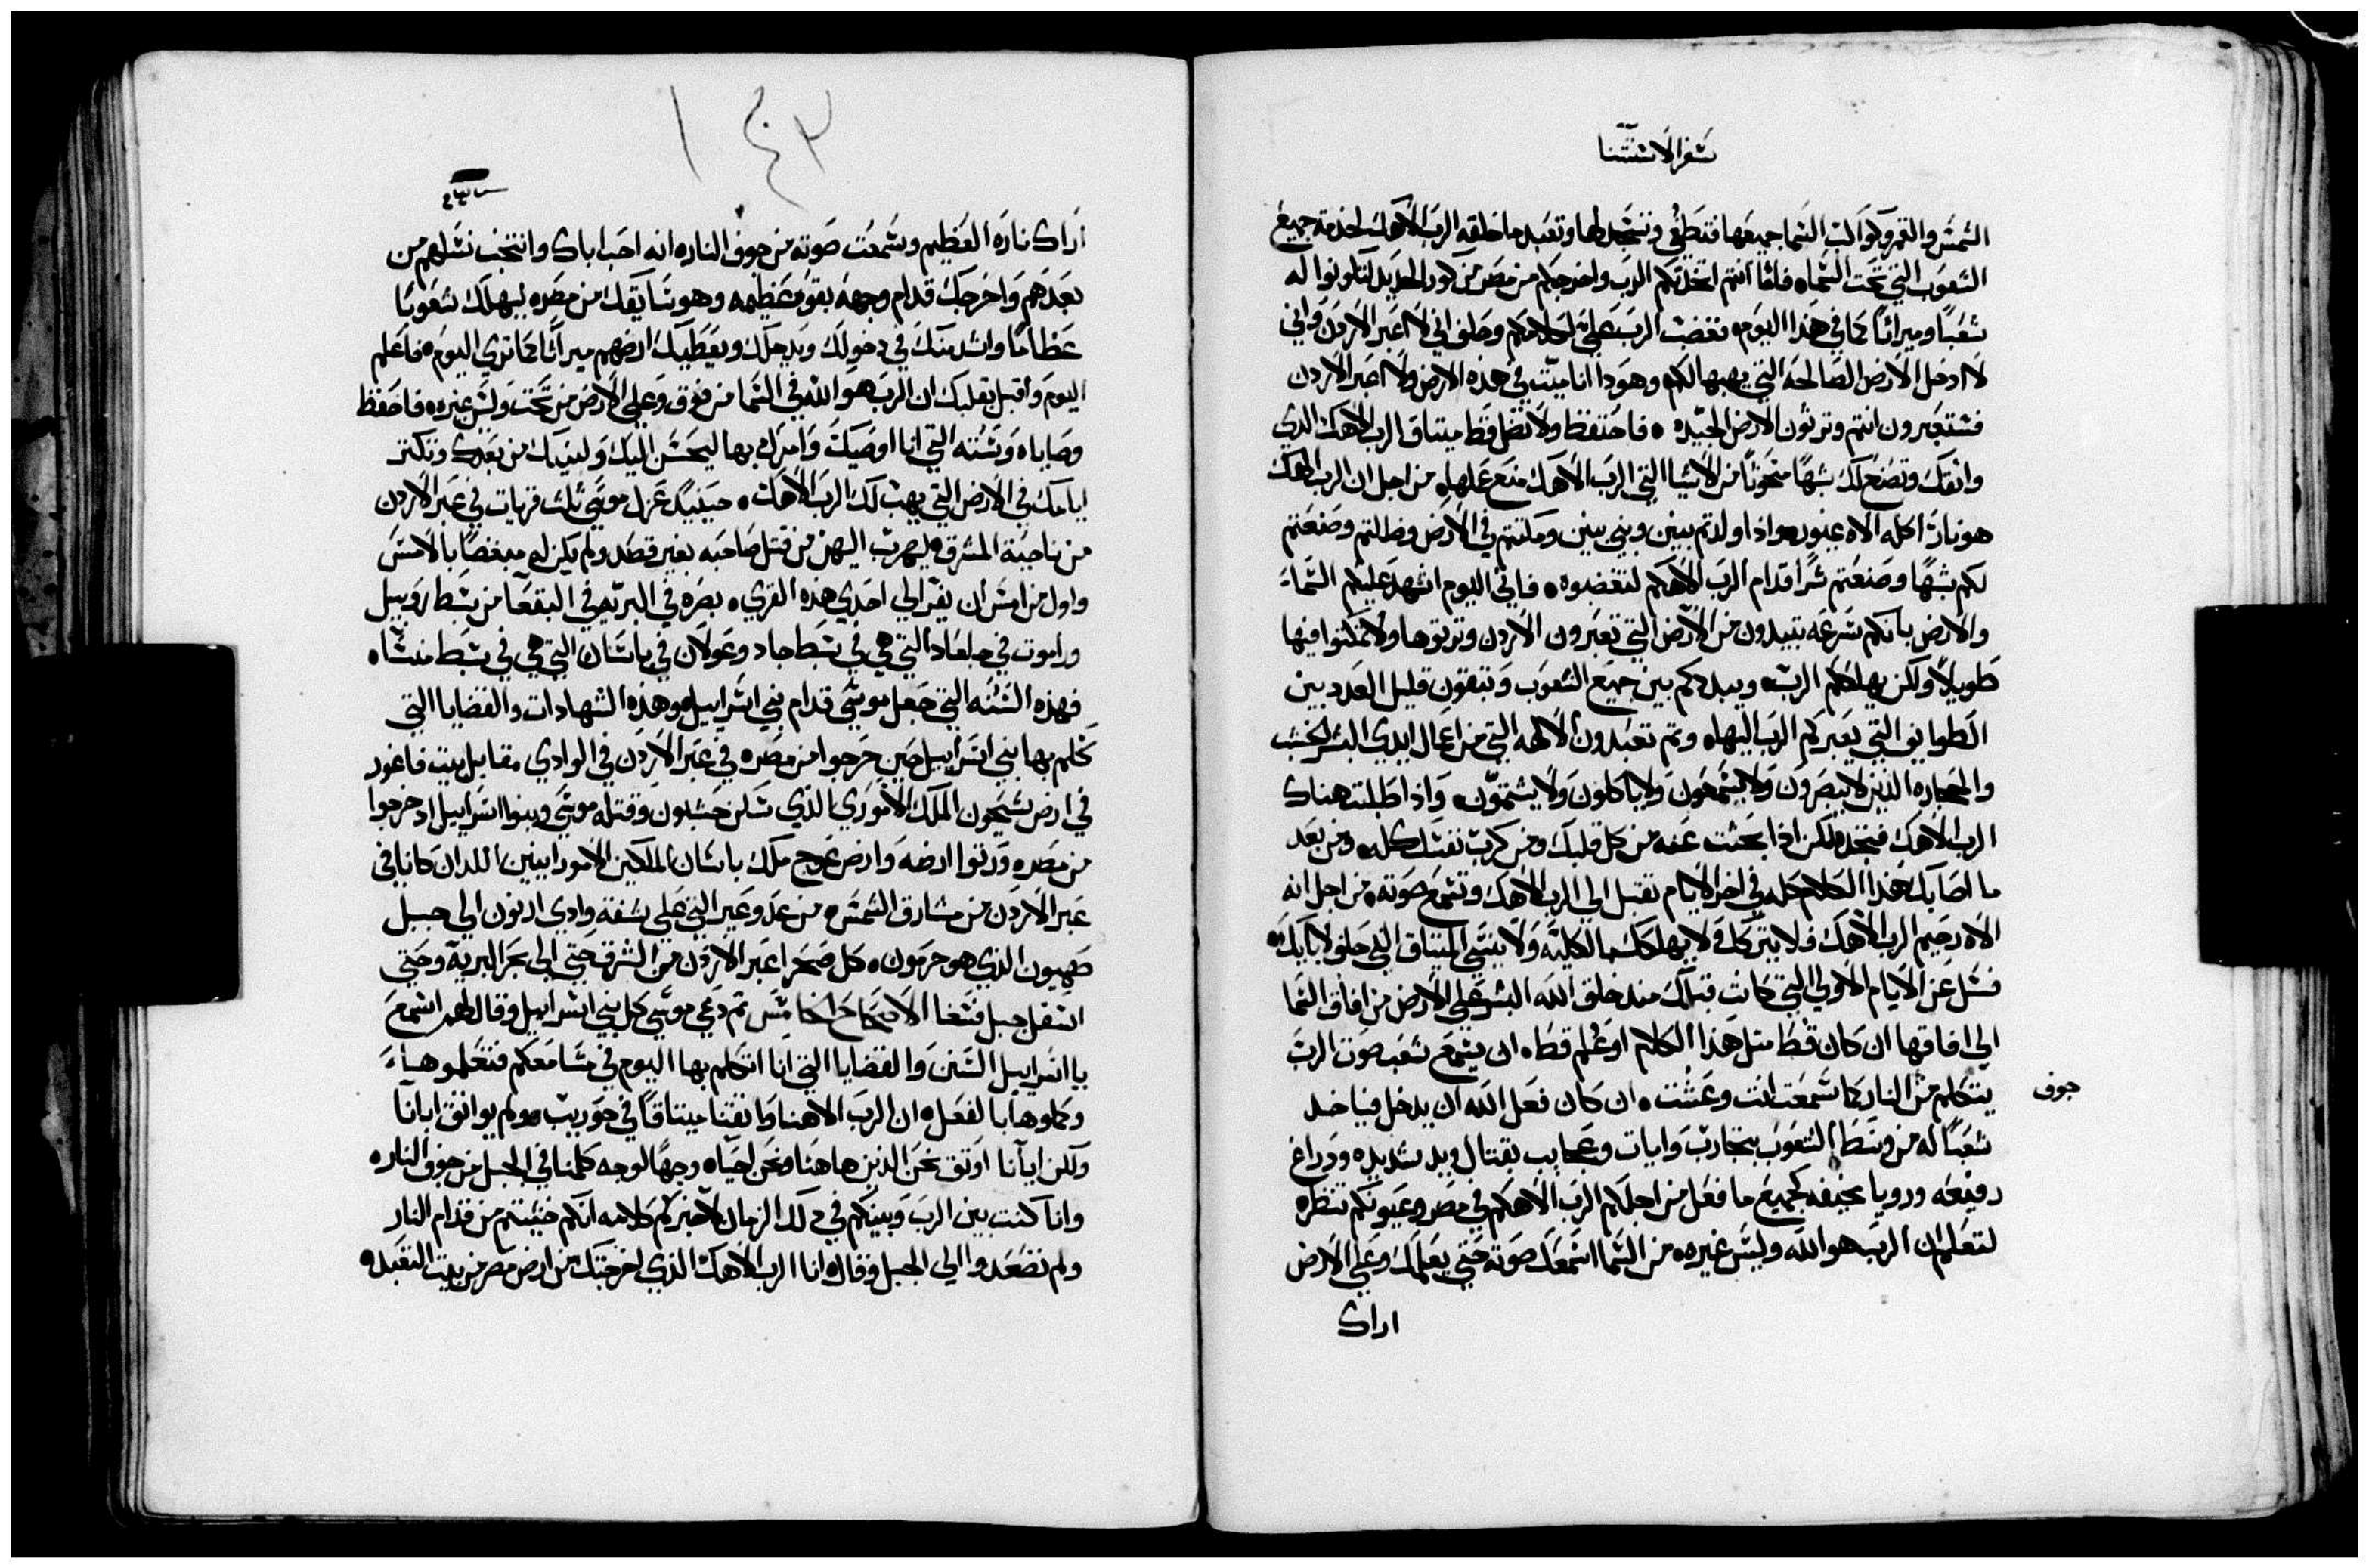 سفر الاستثنا
الشمس والقمر وكواكب السما جميعها فتطغى وتسجد لها وتعبد ما خلقه الرب الاهك لخدمة جميع
الشعوب التي تحت السماه فاما انتم اتخذتكم الرب واخرجكم من مصر من كور الحديد لتكونوا له
شعبًا وميراثًا كما في هذا اليوم فغضب الرب علي لكلامكم وحلف اني لا اعبر الاردن واني
لا ادخل الارض الصالحه التي يهبها لكم وهودا انا ميت في هذه الارض ولا اعبر الاردن
فستعبرون انتم وترثون الارض الجيده فاحتفظ ولا تضل قط ميتاق الرب الاهك الدي
واثقك وتصنع لك شبهًا منحوتًا من الاشيا التي الرب الاهك منع عملها من اجل ان الرب الاهك
هو نار اكله الاه غيور واذا اولدتم بنين وبني بنين ومكثتم في الارض وضللتم وصنعتم
لكم شبهًا وصنعتم شرًا قدام الرب الاهكم لتغضبوه فاني اليوم اشهد عليكم السماء
والارض بانكم سرعه تبيدون من الارض التي تعبرون الاردن وترتوها ولا تمكثوا فيها
طويلاً ولكن يهلككم الرب ويبددكم بين جميع الشعوب وتبقون قليل العدد بين
الطوايف التي يعبركم الرب اليها وتم تعبدون الالهه التي من اعمال ايدي البشر الخشب
والحجاره الذين لا يبصرون ولا يسمعون ولا ياكلون ولا يشتمون واذا طلبت هناك
الرب الاهك فتجد ولكن اذا بحثت عنه من كل قلبك ومن كرب نفسك كله ومن بعد
ما اصابك هذا الكلام كله في اخر الايام تقبل الي الرب الاهك وتسمع صوته من اجل انه
الاه رحيم الرب الاهك فلا يتركك ولا يهلكك بالكليه ولا ينسي الميتاق الذي حلف لابايك
فسل عن الايام الاولي التي كانت قبلك منذ خلق الله البشر علي الارض من افاق السما
الي افاقها ان كان قط مثل هذا الكلام او علم قط ان يسمع شعب صوت الرب
يتكلم من النار كما سمعت انت وعشت ان كان فعل الله ان يدخل فياخد
جوف
شعبًا له من وسط الشعوب بتجارب وايات وعجايب بقتال وبيد شديده ودراع
رفيعه ورويا مخيفه كجميع ما فعل من اجلكم الرب الاهكم في مصر وعيونكم تنظره
لتعلم ان الرب هو الله وليس غيره من السما اسمعك صوته حتي يعلمك وعلي الارض
اراك
١٤٣
اراك ناره العظيم وسمعت صوته من جوف الناره انه احب اباك وانتخب نسلهم من
بعدهم واخرجك قدام وجهه بقوه عظيمه وهو سايقك من مصره ليهلك شعوبًا
عظامًا واشد منك في دخولك ويدخلك ويعطيك ارضهم ميراثًا كما تري اليوم فاعلم
اليوم واقبل بقلبك ان الرب هو الله في السما من فوق وعلي الارض من تحت وليس غيره فاحفظ
وصاياه وسننه التي انا اوصيك وامرك بها ليحسن اليك ولبنيك من بعدك وتكتر
ايامك في الارض التي يهب لك الرب الاهك حينيد عزل موسي ثلث قريات في عبر الاردن
من ناحية المشرق ليهرب اليهن من قتل صاحبه بغير قصد ولم يكن له مبغضًا بالامس
واول من امس ان يفر الي احدي هذه القري بصره في البريه في البقعا من سبط روبيل
وراموت في جلعاد التي هي في سبط جاد وعولان في باسان التي هي في سبط منشاه
فهذه السنه التي جعل موسي قدام بني اسراييل وهذه الشهادات والقضايا التي
كلم بها بني اسراييل حين خرجوا من مصره في عبر الاردن في الوادي مقابل بيت فاغور
في ارض سيحون الملك الاموري الذي سكن حشبون وقتله موسي وبنوا اسراييل اد خرجوا
من مصره وورتوا ارضه وارض عوج ملك باسان الملكين الامورانيين اللدان كانا في
عبر الاردن من مشارق الشمس من عد وعير التي علي شفة وادي ارنون الي جبل
صهيون الذي هو حرمون كل صحرا عبر الاردن من الشرق حتي الي بحر البرية وحتي
اسفل جبل فسغا الاصحاح الخامس تم دعي موسي كل بني اسراييل وقال لهم اسمع
يا اسراييل السنن والقضايا التي انا اتكلم بها اليوم في مسامعكم فتعلموها
وكملوها بالفعل ان الرب الاهنا واثقنا ميتاقًا في حوريب ولم يواثق ابانا
ولكن ايانا اوثق نحن الذين هاهنا ونحن احياه وجهًا لوجه كلمنا في الجبل من جوف الناره
وانا كنت بين الرب وبينكم في دلك الزمان لاخبركم كلامه انكم خشيتم من قدام النار
ولم تصعدوا الي الجبل وقال انا الرب الاهك الذي اخرجتك من ارض مصر من بيت التعبد